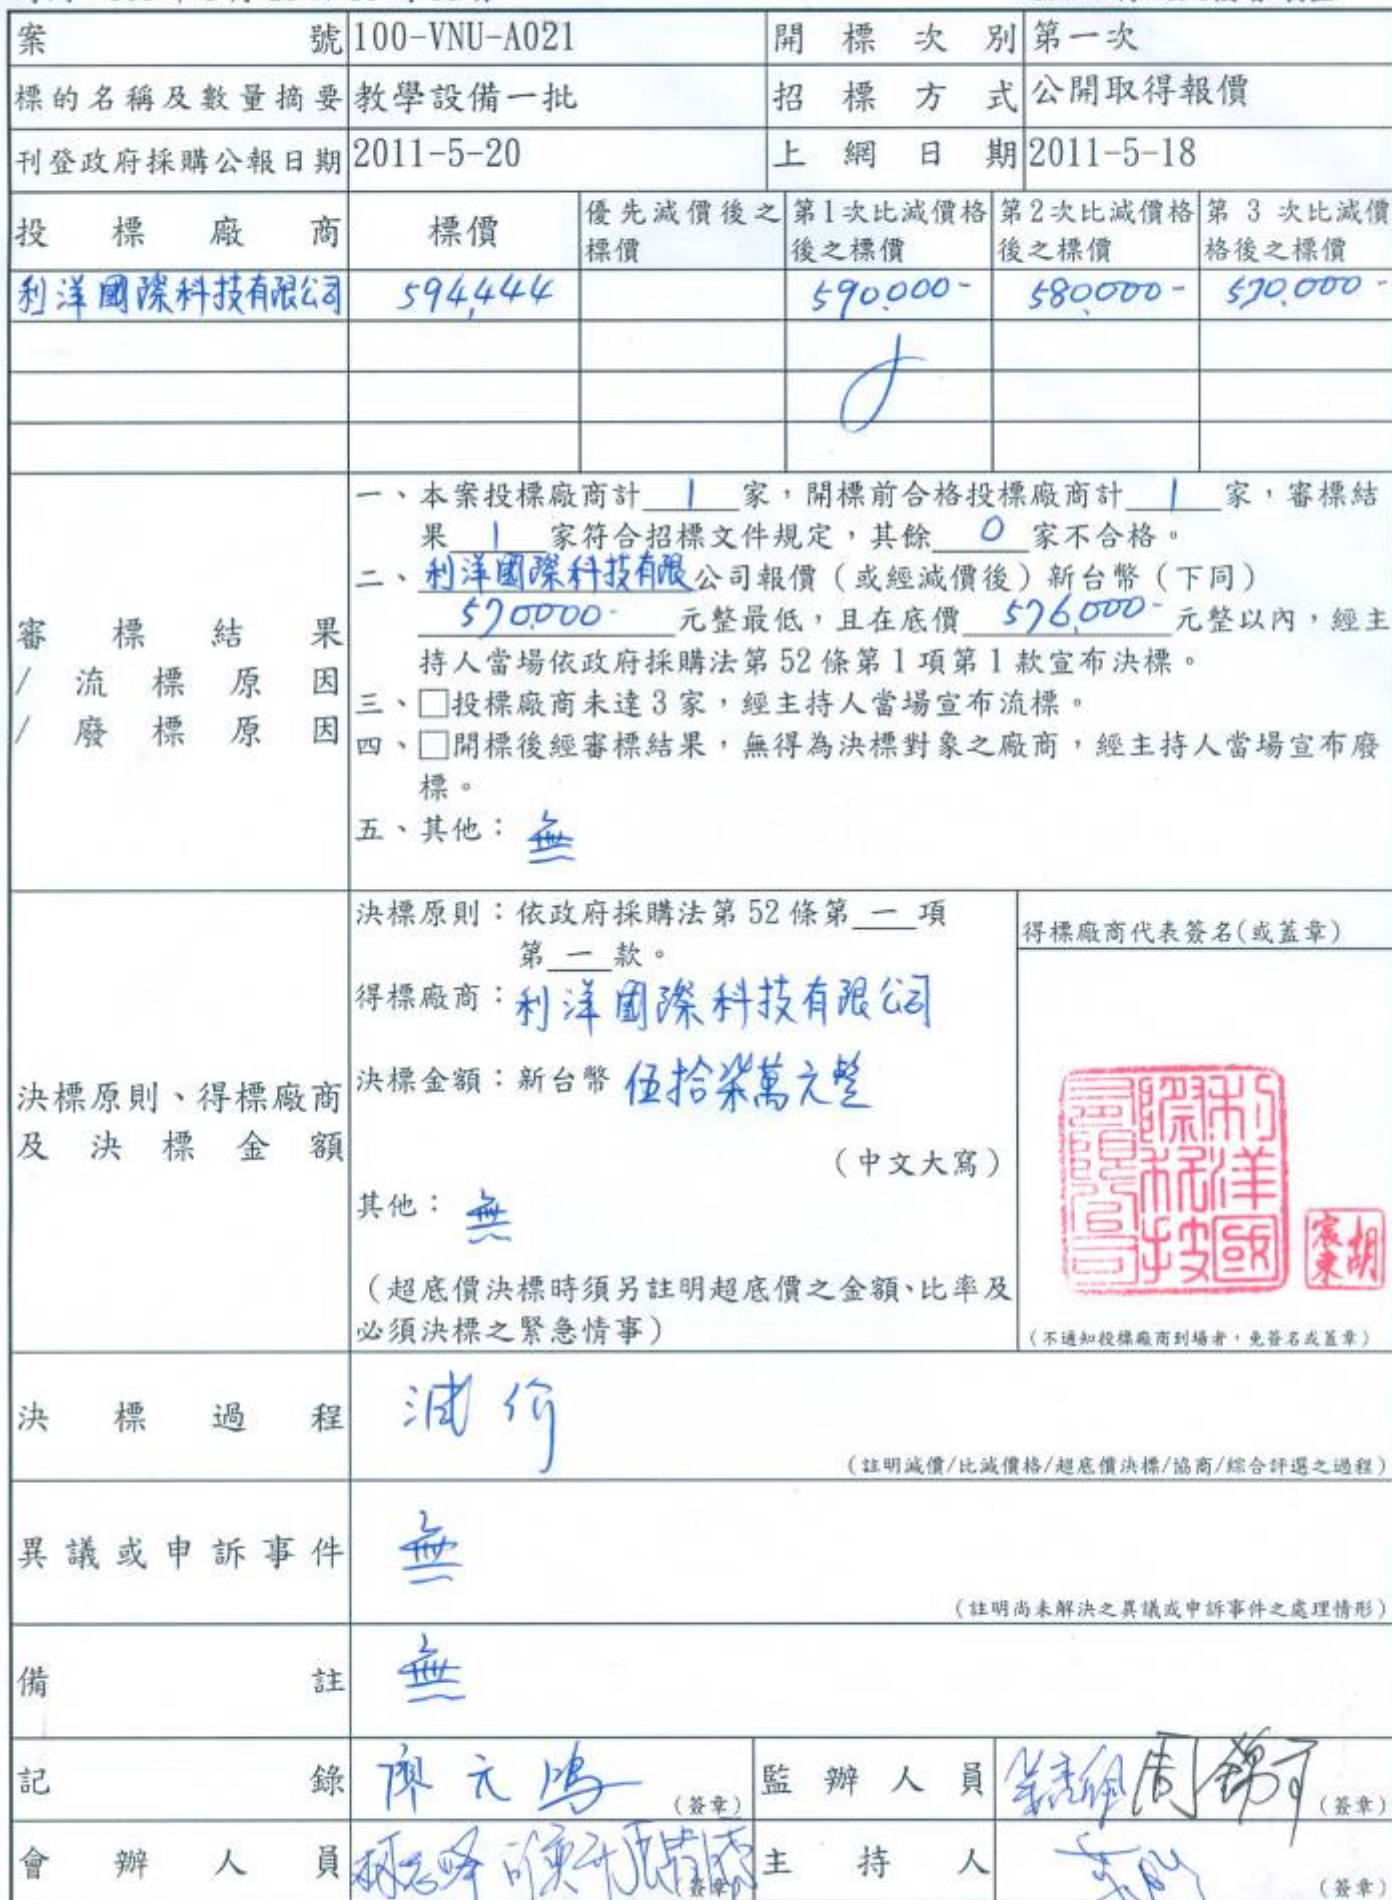 案號 100-VNU-A021 開標次別 第一次
標的名稱及數量摘要 教學設備一批 招標方式 公開取得報價
刊登政府採購公報日期 2011-5-20 上網日期 2011-5-18
投標廠商 標價 優先減價後之標價 第1次比減價格後之標價 第2次比減價格後之標價 第 3 次比減價格後之標價
利洋國際科技有限公司 594,444 590,000- 580,000- 570,000-
審標結果
/流標原因
/廢標原因
一、本案投標廠商計 1 家,開標前合格投標廠商計 1 家,審標結
果 1 家符合招標文件規定,其餘 0 家不合格。
二、利洋國際科技有限公司報價(或經減價後)新台幣(下同)
570,000- 元整最低,且在底價 576,000- 元整以內,經主
持人當場依政府採購法第 52 條第 1 項第 1 款宣布決標。
三、□投標廠商未達 3 家,經主持人當場宣布流標。
四、□開標後經審標結果,無得為決標對象之廠商,經主持人當場宣布廢
標。
五、其他:無
決標原則、得標廠商
及決標金額
決標原則:依政府採購法第 52 條第 一 項
第 一 款。
得標廠商:利洋國際科技有限公司
決標金額:新台幣 伍拾柒萬元整
(中文大寫)
其他:無
(超底價決標時須另註明超底價之金額、比率及
必須決標之緊急情事)
得標廠商代表簽名(或蓋章)
利洋國際科技有限公司
(不通知投標廠商到場者,免簽名或蓋章)
決標過程 減价
(註明減價/比減價格/超底價決標/協商/綜合評選之過程)
異議或申訴事件 無
(註明尚未解決之異議或申訴事件之處理情形)
備註 無
記錄 廖元鴻 (簽章) 監辦人員 (簽章)
會辦人員 (簽章) 主持人 (簽章)